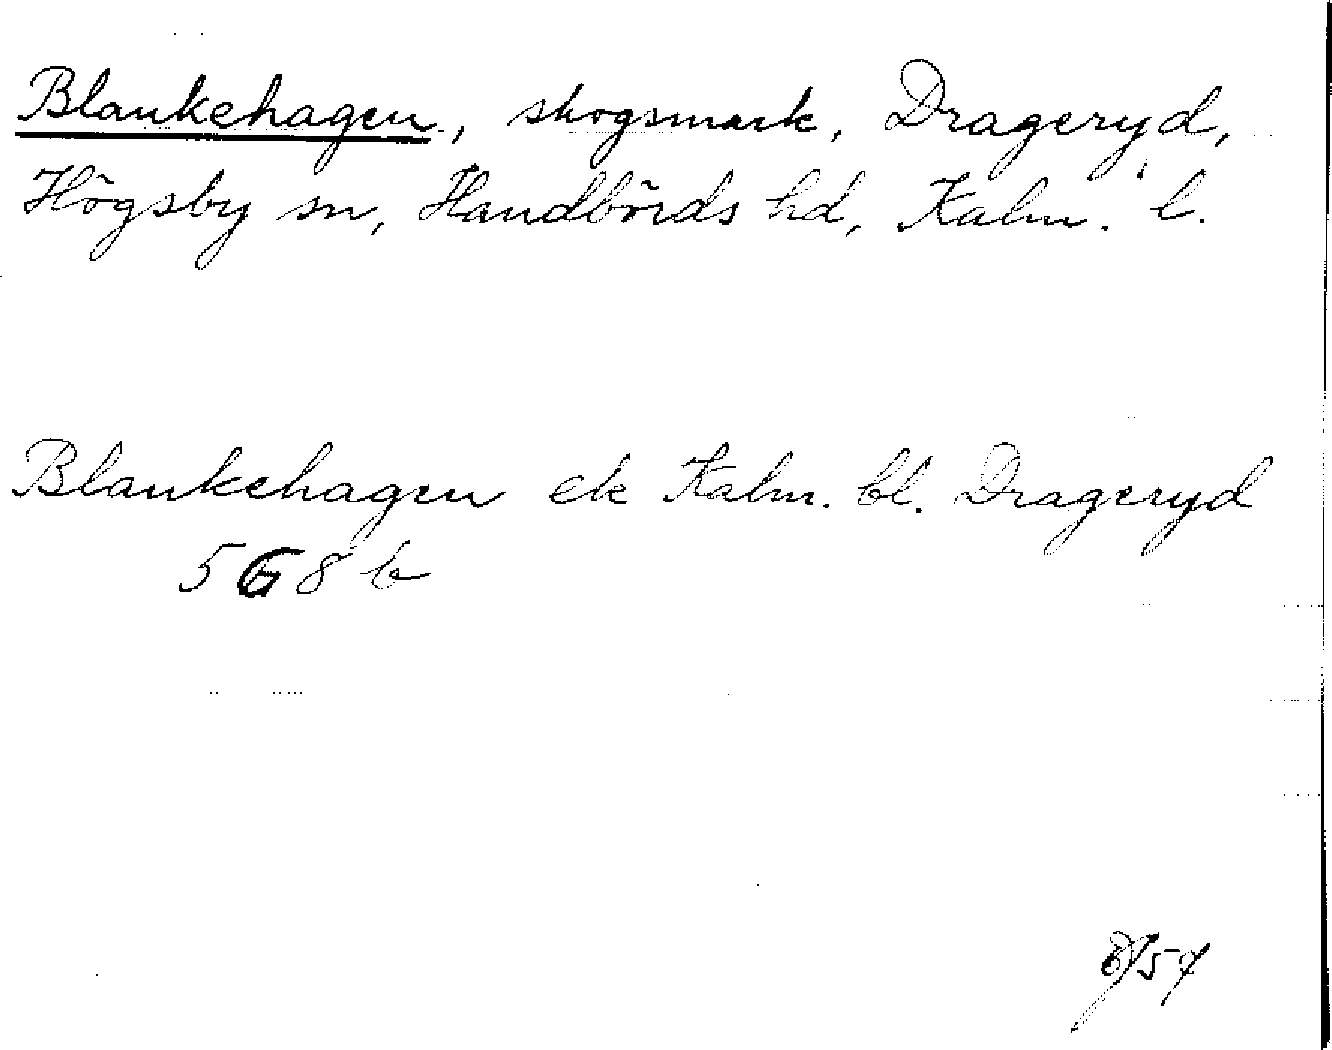 Blankehagen, skogsmark, Drageryd,
Högsby sn, Handbörds hd, Kalm. l.
Blankehagen ek Kalm. bl. Drageryd
5G8b